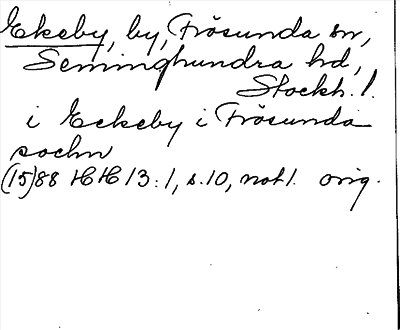 Ekeby, by, Frösunda sn,
Seminghundra hd,
Stockh. l.
i Eckeby i Frösunda
sochn
(15)88 HH 13:1, s. 10, not 1. orig.